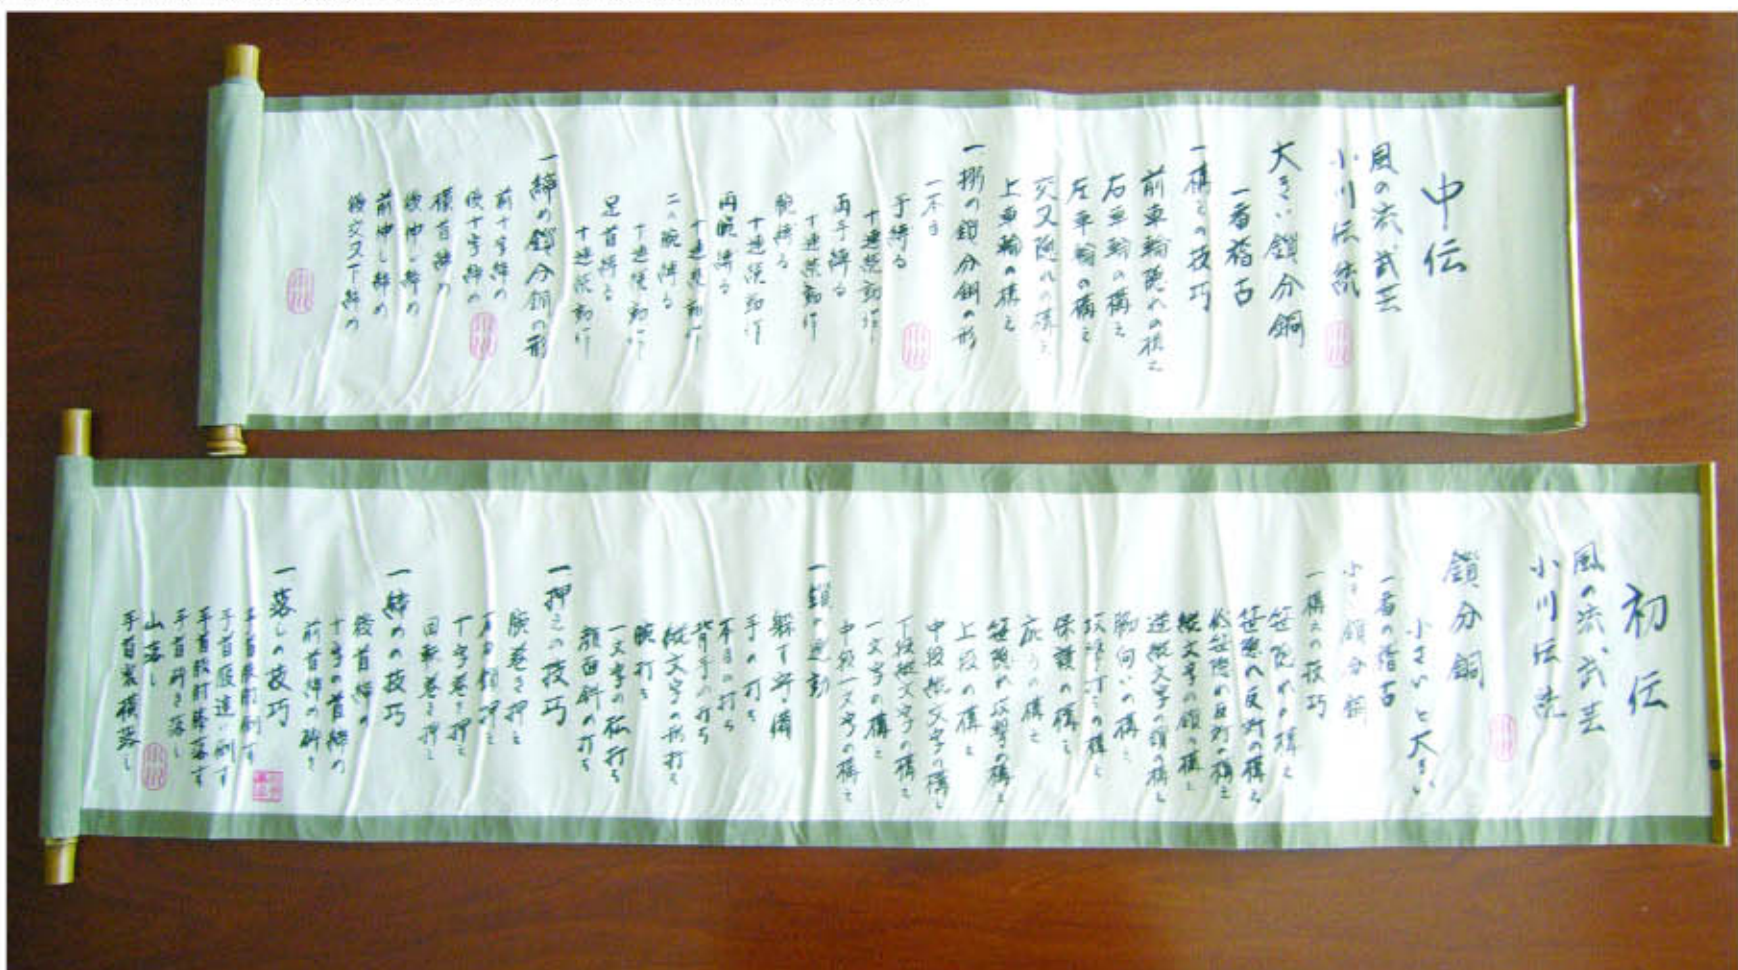 中伝
風の流武芸
小川伝統
大きい鎖分銅
一番稽古
一構えの技巧
前車輪隠れの構え
右車輪の構え
左車輪の構え
交叉隠れの構え
上車輪の構え
一搦の鎖分銅の形
一本目
手縛る
十連続動作
両手縛る
十連続動作
腕縛る
十連続動作
両腕縛る
十連続動作
二の腕縛る
十連続動作
足首縛る
十連続動作
一締め鎖分銅の形
前十字締め
後十字締め
横首締め
後伸し締め
前伸し締め
後交叉下締め
初伝
風の流武芸
小川伝統
鎖分銅
小さいと大きい
一番の稽古
小さい鎖分銅
一構えの技巧
笹隠れの構え
笹隠れ反対の構え
縦文字の鎖の構え
逆縦文字の鎖の構え
胸向いの構え
保護の構え
上段の構え
中段縦文字の構え
下段縦文字の構え
一文字の構え
中段一文字の構え
一鎖の運動
手の打ち
背手の打ち
縦文字の形打ち
腕打ち
一文字の打ち
顔面斜の打ち
一押えの技巧
腕巻き押え
十字巻き押え
回転巻き押え
一締めの技巧
後首締め
十字の首締め
前首締めの砕き
一落しの技巧
手首砕き落し
山落し
手首裏横落し